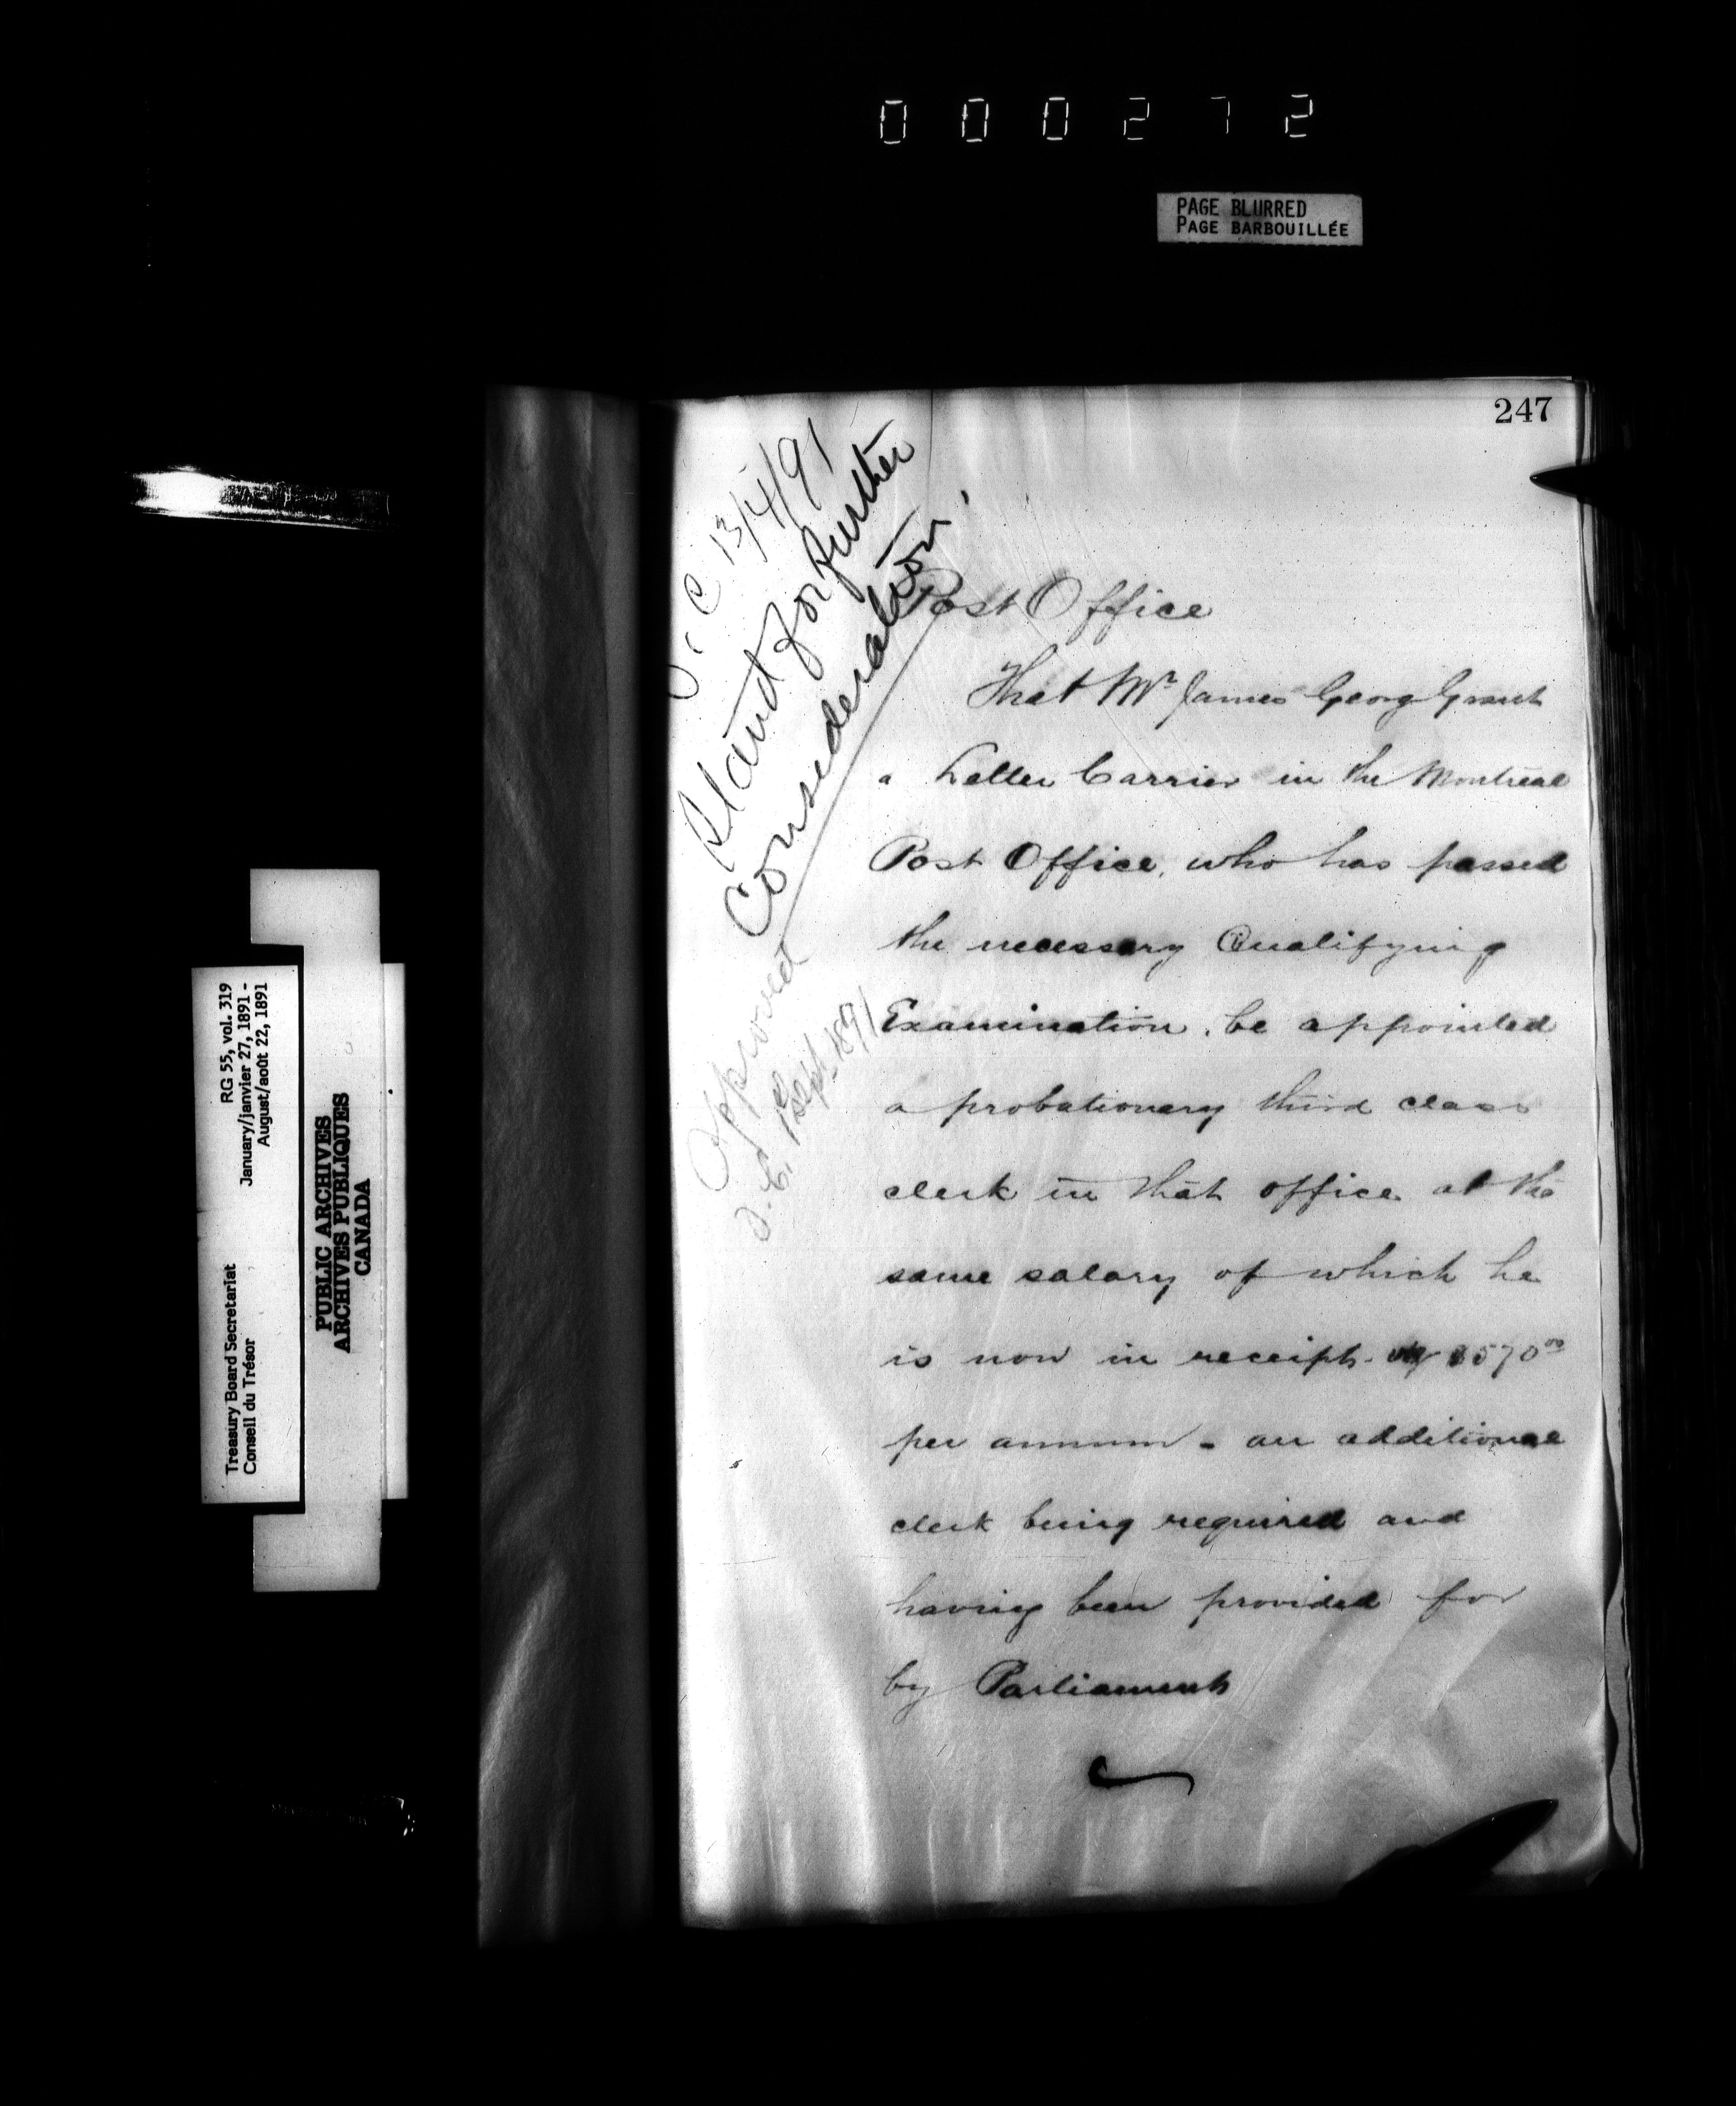 000272
PAGE BLURRED
PAGE BARBOUILLÉE
247
C 13/4/91
Stand for further
Consideration
Approved
1st Sept 1891
Post Office
That Mr James Georg Grant
a Letter Carrier in the Montreal
Post Office, who has passed
the necessary Qualifying
Examination, be appointed
a probationary third class
clerk in that office at the
same salary of which he
is now in receipt - of $570 00
per annum - an additional
clerk being required and
having been provided for
by Parliament
RG 55, vol. 319
January/janvier 27, 1891 -
August/août 22, 1891
Treasury Board Secretariat
Conseil du Trésor
PUBLIC ARCHIVES
ARCHIVES PUBLIQUES
CANADA